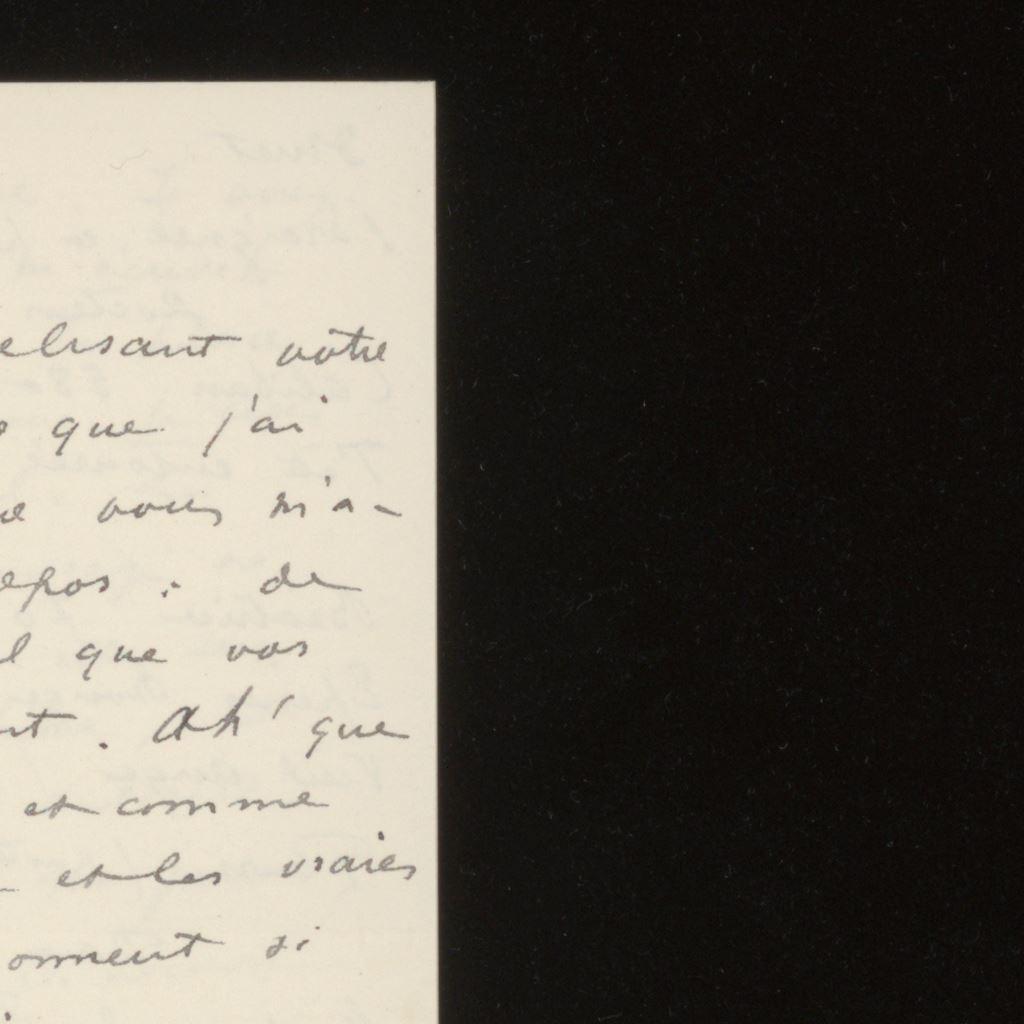 elisant votre
que j'ai
vous m'a-
epos : de
l que vos
nt. Ah! que
et comme
et les vraies
onnent si